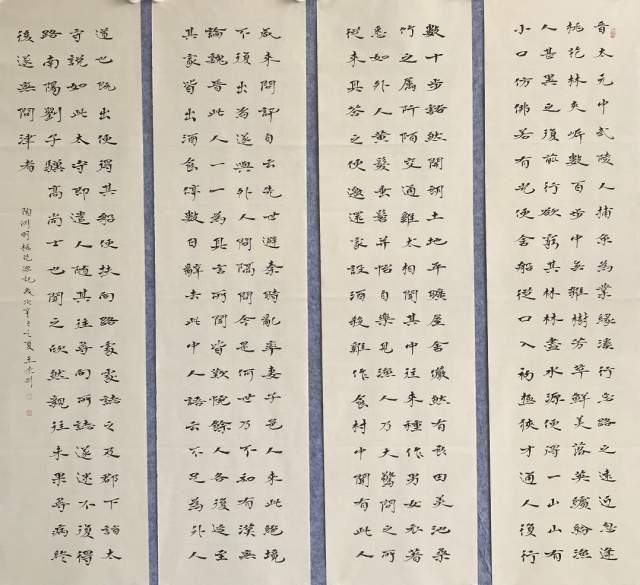 晉太元中武陵人捕魚為業緣溪行忘路之遠近忽逢
桃花林夾岸數百步中無雜樹芳草鮮美落英繽紛漁
人甚異之復前行欲窮其林林盡水源便得一山山有
小口仿佛若有光便舍船從口入初極狹才通人復行
數十步豁然開朗土地平曠屋舍儼然有良田美池桑
竹之屬阡陌交通雞犬相聞其中往來種作男女衣著
悉如外人黃髮垂髫并怡自樂見漁人乃大驚問之所
從來具答之便邀還家設酒殺雞作食村中聞有此人
咸來問訊自云先世避秦時亂率妻子邑人來此絕境
不復出焉遂與外人間隔問今是何世乃不知有漢無
論魏晉此人一一為具言所聞皆歎惋餘人各復延至
其家皆出酒食停數日辭去此中人語云不足為外人
道也既出便得其船便扶向路處處誌之及郡下詣太
守說如此太守即遣人隨其往尋向所誌遂迷不復得
路南陽劉子驥高尚士也聞之欣然親往未果尋病終
後遂無問津者
陶渊明桃花源記戊戌年之夏王